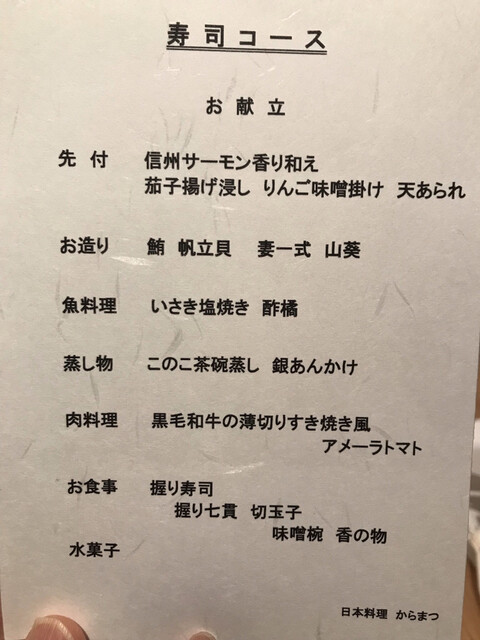 寿司コース
お献立
先付 信州サーモン香り和え
茄子揚げ浸し りんご味噌掛け 天あられ
お造り 鮪 帆立貝 妻一式 山葵
魚料理 いさき塩焼き 酢橘
蒸し物 このこ茶碗蒸し 銀あんかけ
肉料理 黒毛和牛の薄切りすき焼き風
アメーラトマト
お食事 握り寿司
握り七貫 切玉子
味噌椀 香の物
水菓子
日本料理 からまつ